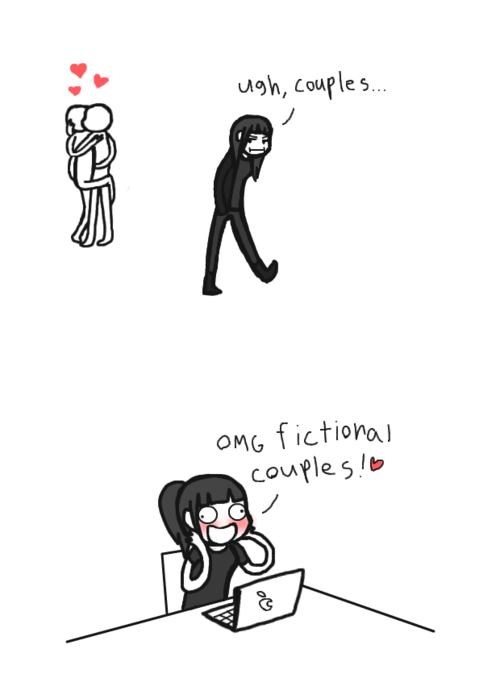 ugh, couples...
OMG fictional
couples!